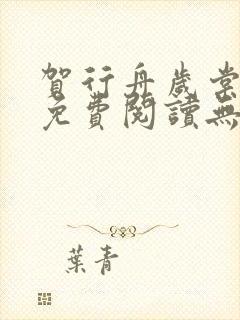 賀行舟歲棠
免費閱讀無
葉青